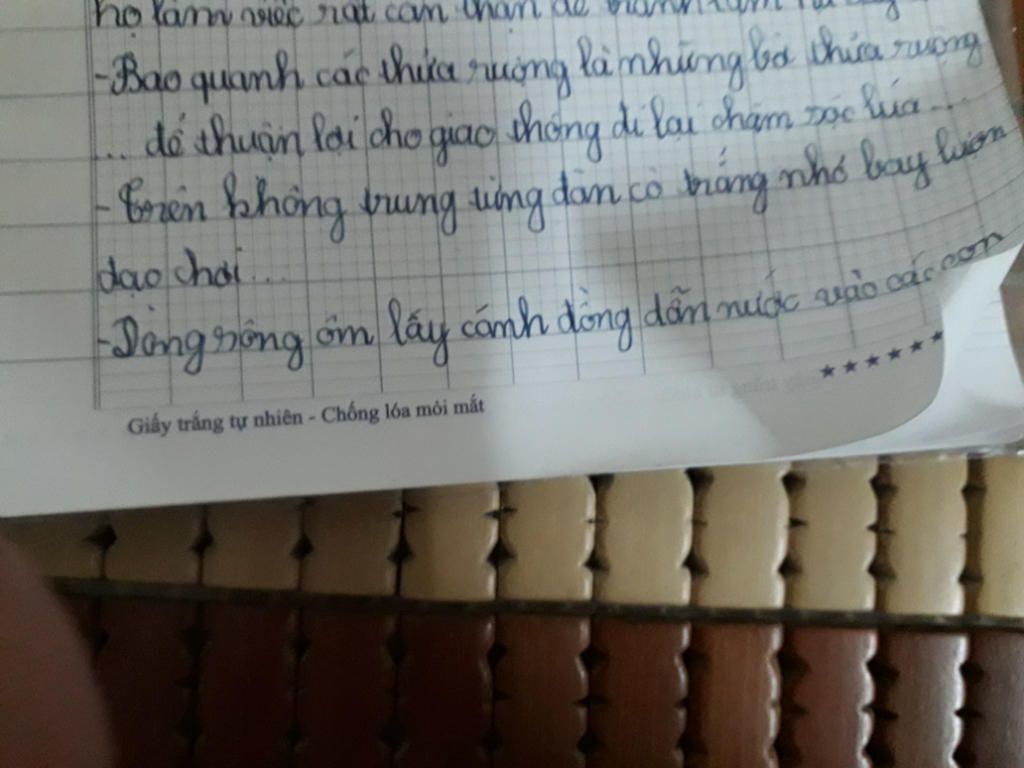 họ làm việc rất cẩn thận để tránh
-Bao quanh các thửa ruộng là những bờ thửa ruộng
... để thuận lợi cho giao thông đi lại chăm sóc lúa...
-Trên không trung từng đàn cò trắng nhỏ bay lượn
dạo chơi...
-Dòng sông ôm lấy cánh đồng dẫn nước vào các con
★★★★★★
Giấy trắng tự nhiên - Chống lóa mỏi mắt